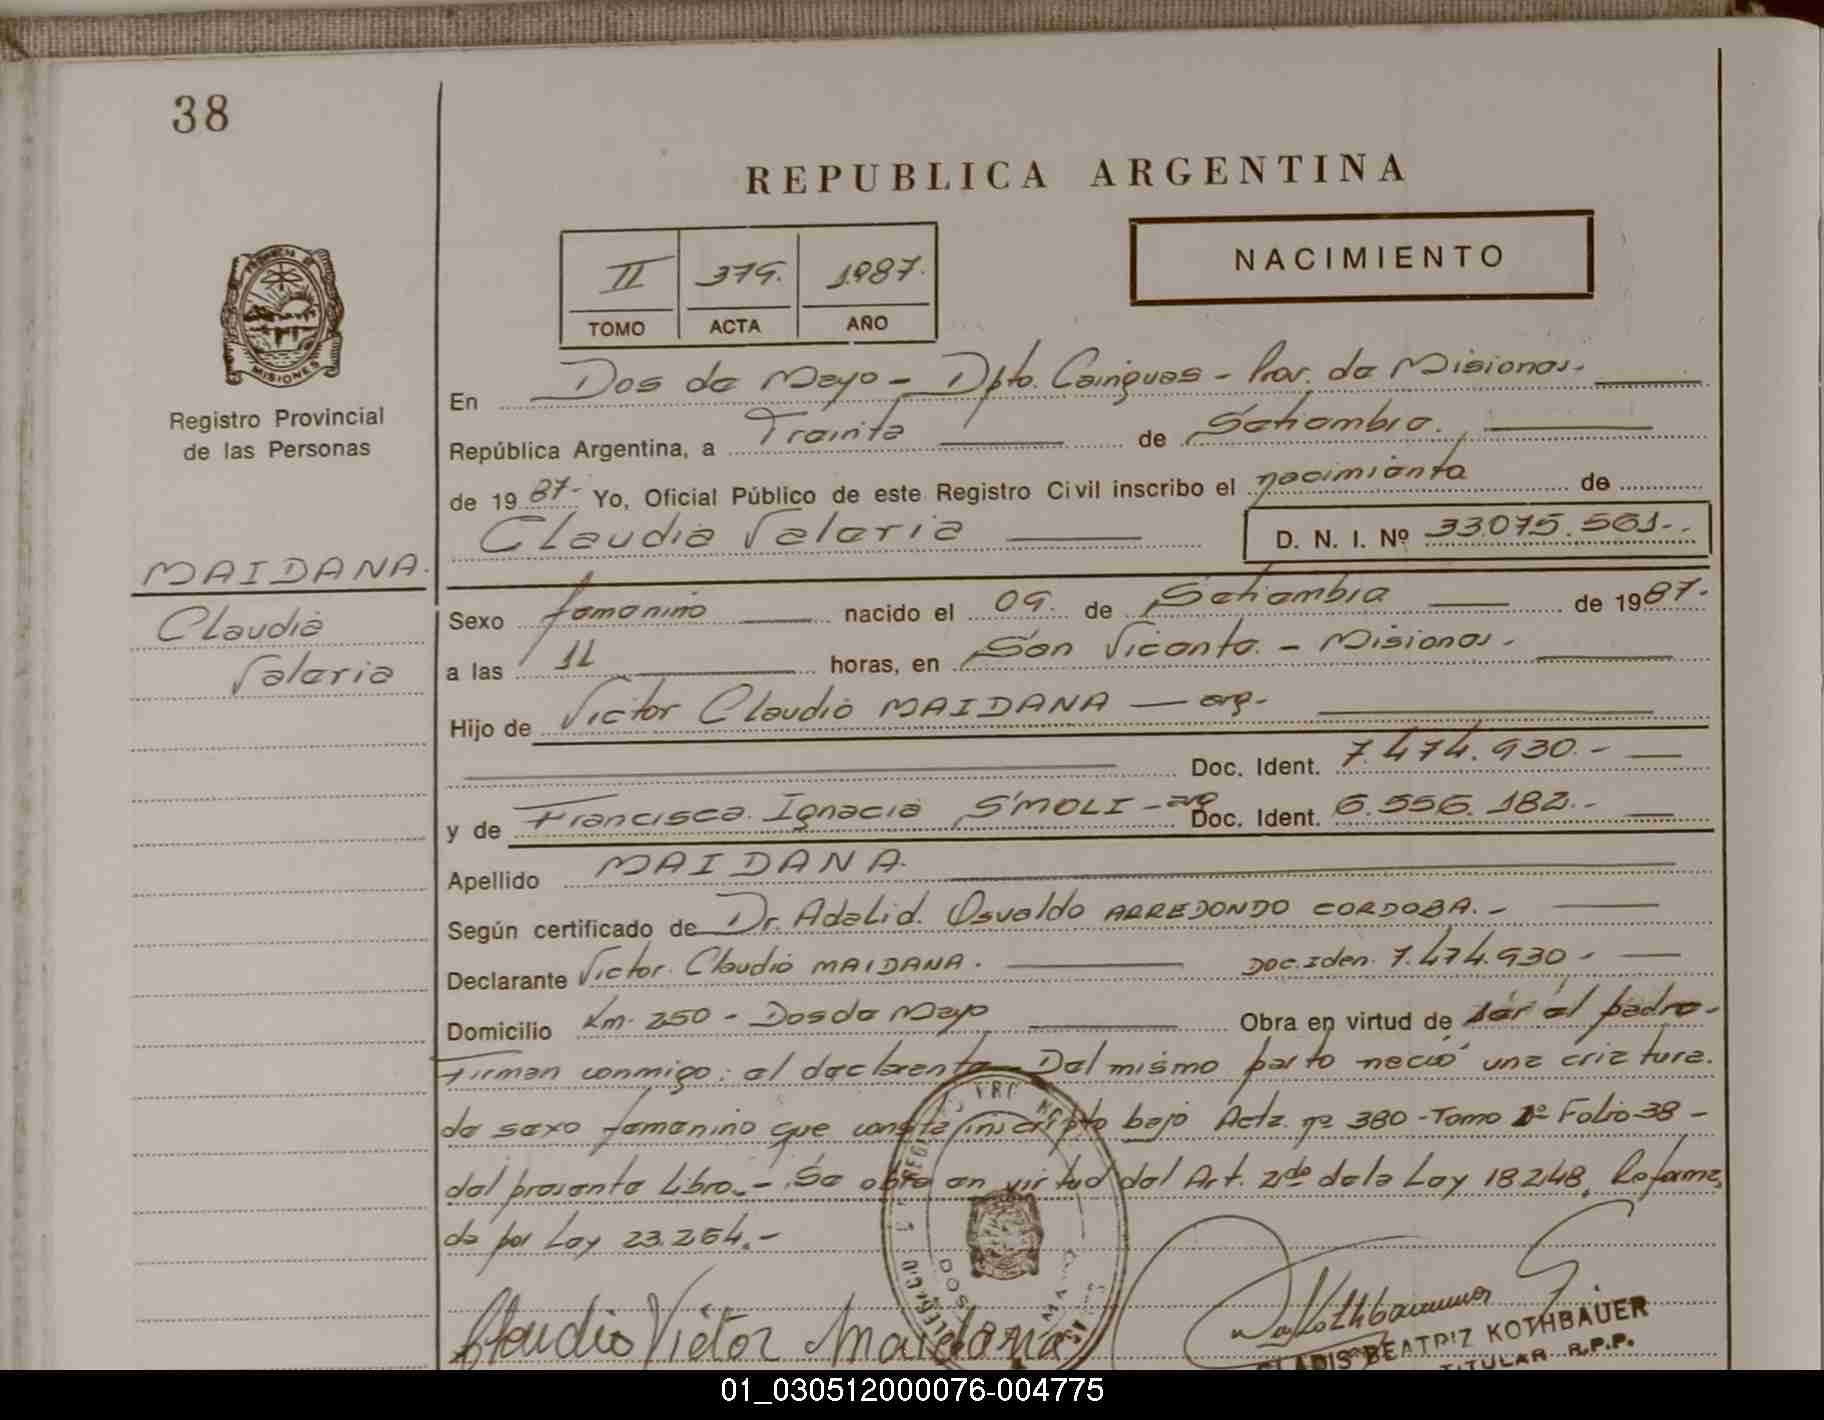 38
REPUBLICA ARGENTINA
NACIMIENTO
II 379. 1987.
TOMO ACTA AÑO
MISIONES
Registro Provincial
de las Personas
En Dos de Mayo - Dpto. Cainguas - Prov. de Misiones.
República Argentina, a Treinta de Setiembre.
de 1987- Yo, Oficial Público de este Registro Civil inscribo el nacimiento de
Claudia Valeria D. N. I. Nº 33.075.561-.
MAIDANA.
Claudia
Valeria
Sexo femenino nacido el 09. de Setiembre de 1987.
a las 11 horas, en San Vicente. - Misiones.
Hijo de Victor Claudio MAIDANA — arg-
Doc. Ident. 7.474.930.-
y de Francisca Ignacia SMOLI - arg Doc. Ident. 6.556.182.-
Apellido MAIDANA.
Según certificado de Dr. Adalid. Osvaldo ARREDONDO CORDOBA. -
Declarante Victor. Claudio MAIDANA. Doc. Iden. 7.474.930 -
Domicilio Km. 250 - Dos de Mayo Obra en virtud de ser el padre-
Firman conmigo: el declarente - Del mismo parto neció una criatura.
de sexo femenino que consta inscripto bajo Acta. nº 380 - Tomo 2º Folio 38 -
del presente Libro.- Se obra en virtud del Art. 2do de la Ley 18248. Reforma
da por Ley 23.264.-
Claudio Victor Maidana
GLADIS BEATRIZ KOTHBAUER
TITULAR R.P.P.
01_030512000076-004775